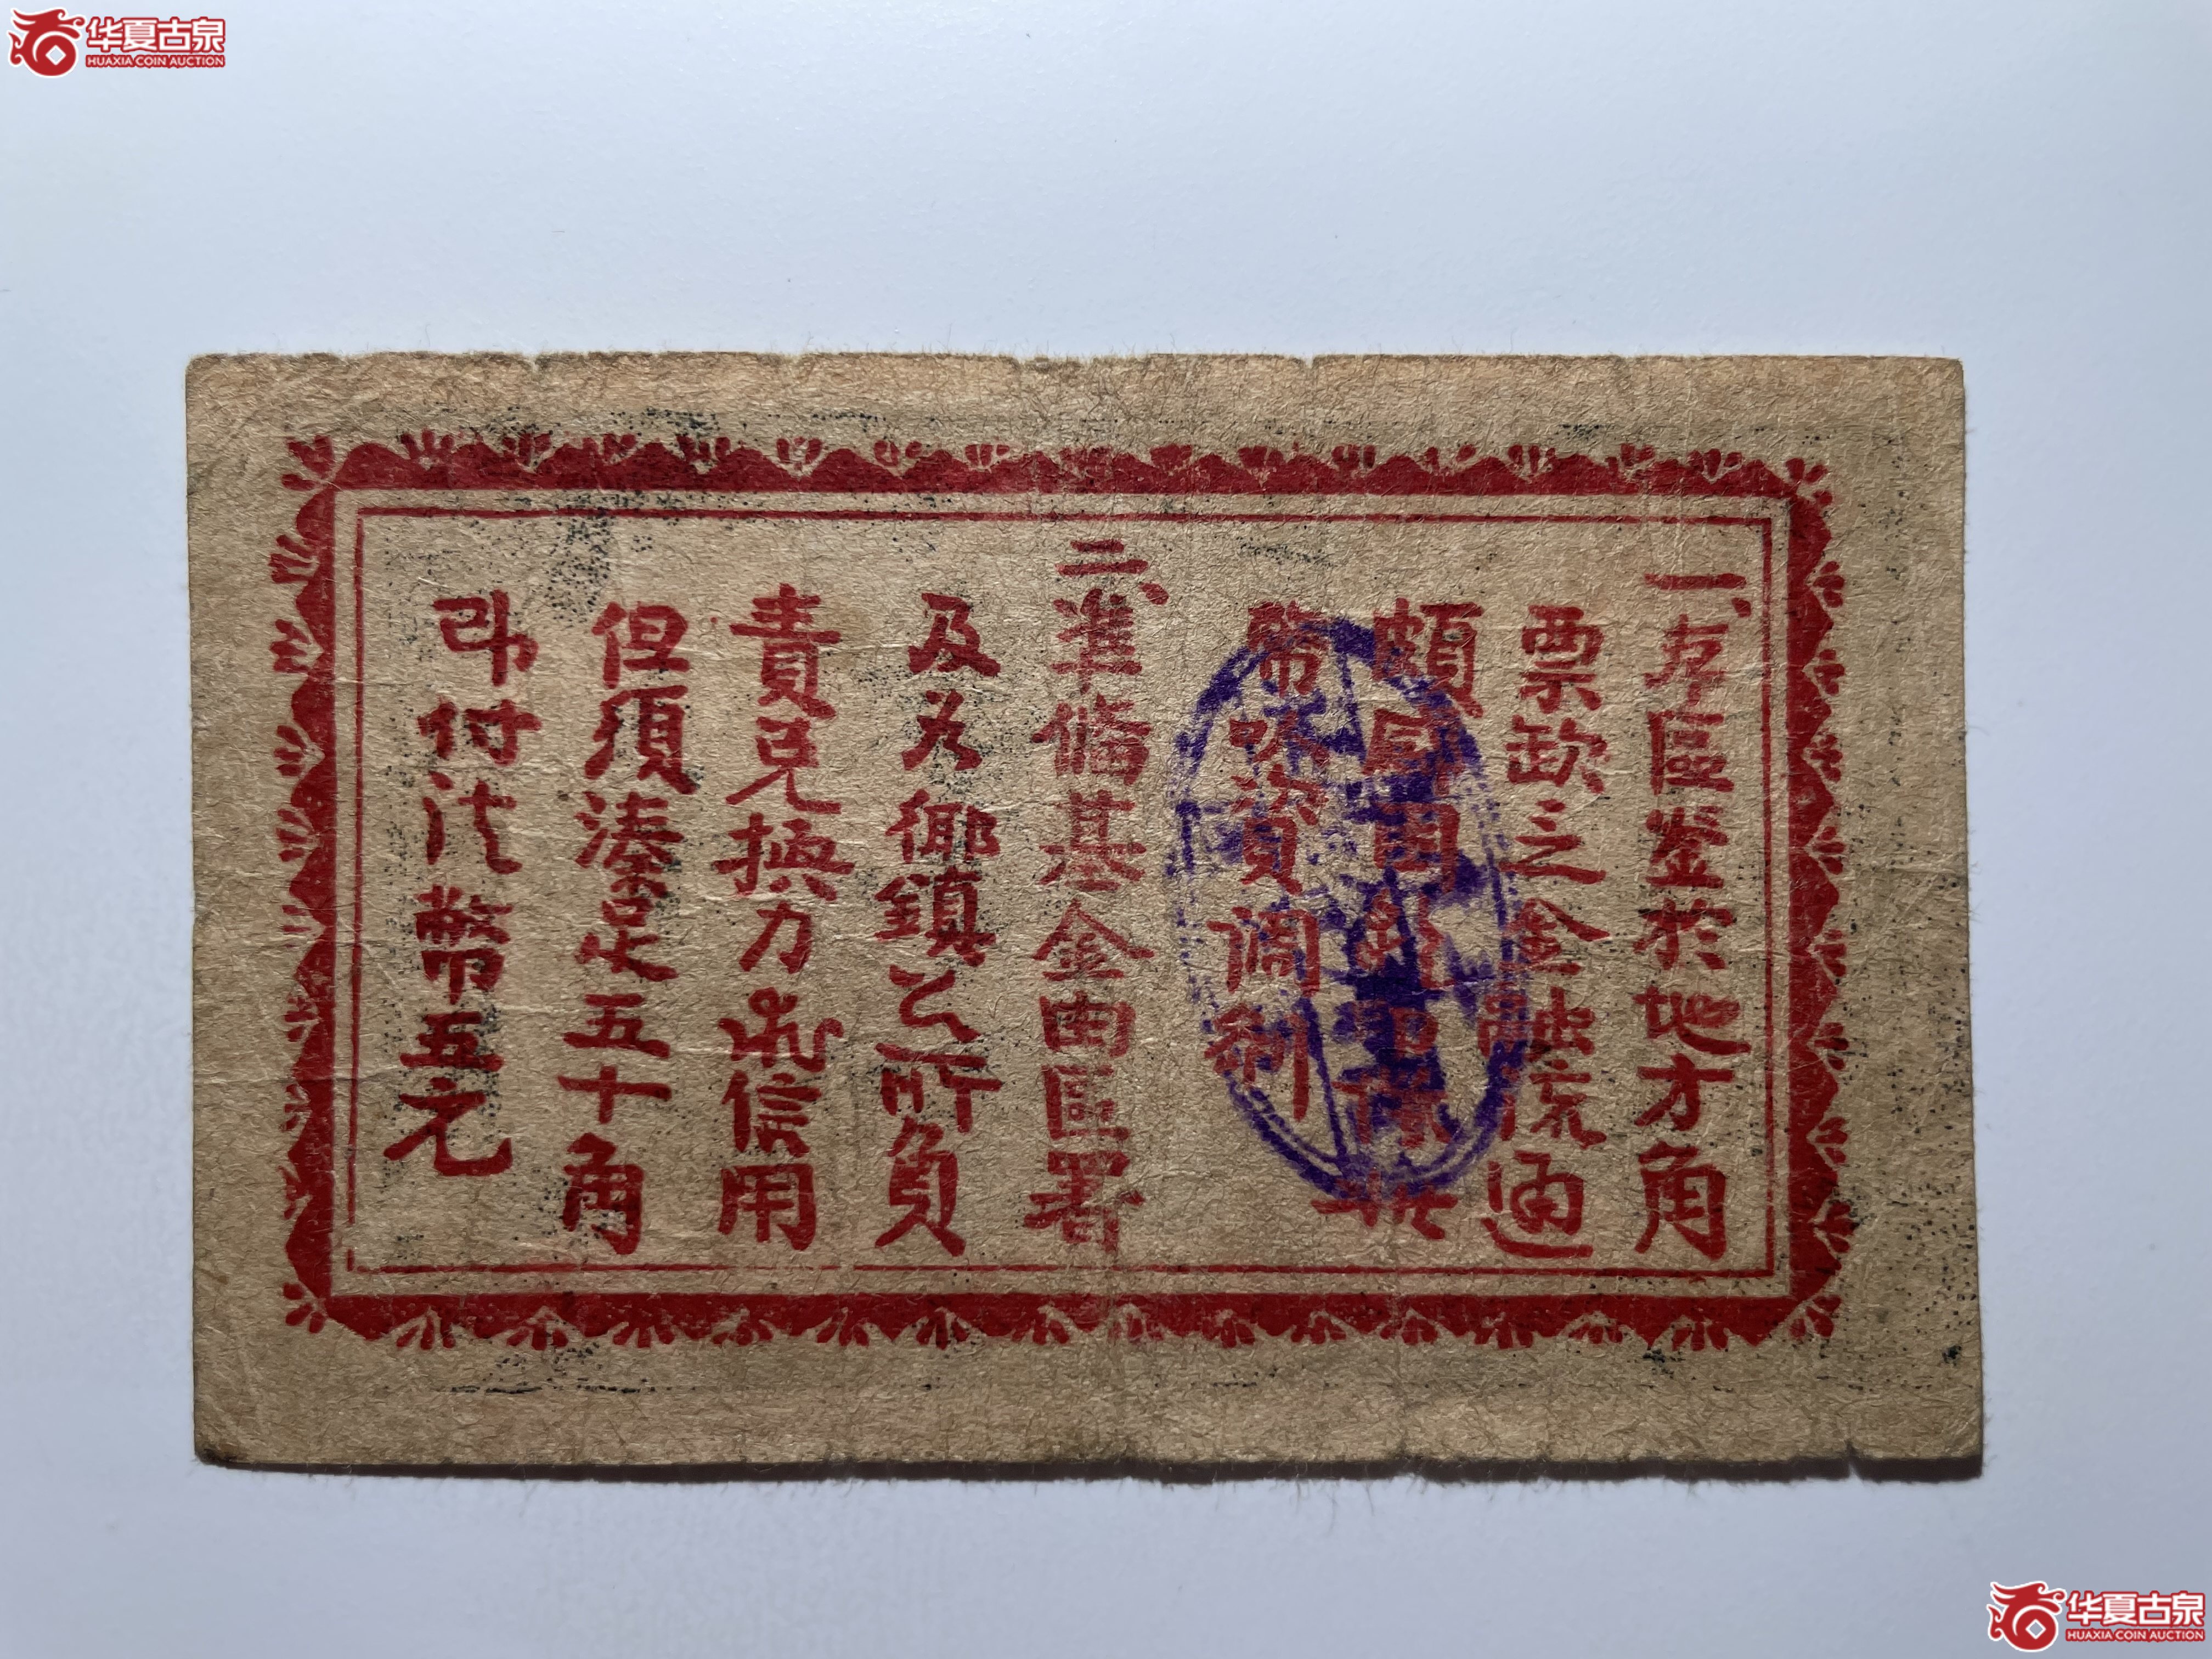 华夏古泉
HUAXIA COIN AUCTION
一、本區鉴於地方角
票缺乏金融流通
頗感困難印條共
幣以資調劑
二、準備基金由區署
及各鄉鎮公所負
責兌換力求信用
但須湊足五十角
即付法幣五元
华夏古泉
HUAXIA COIN AUCTION